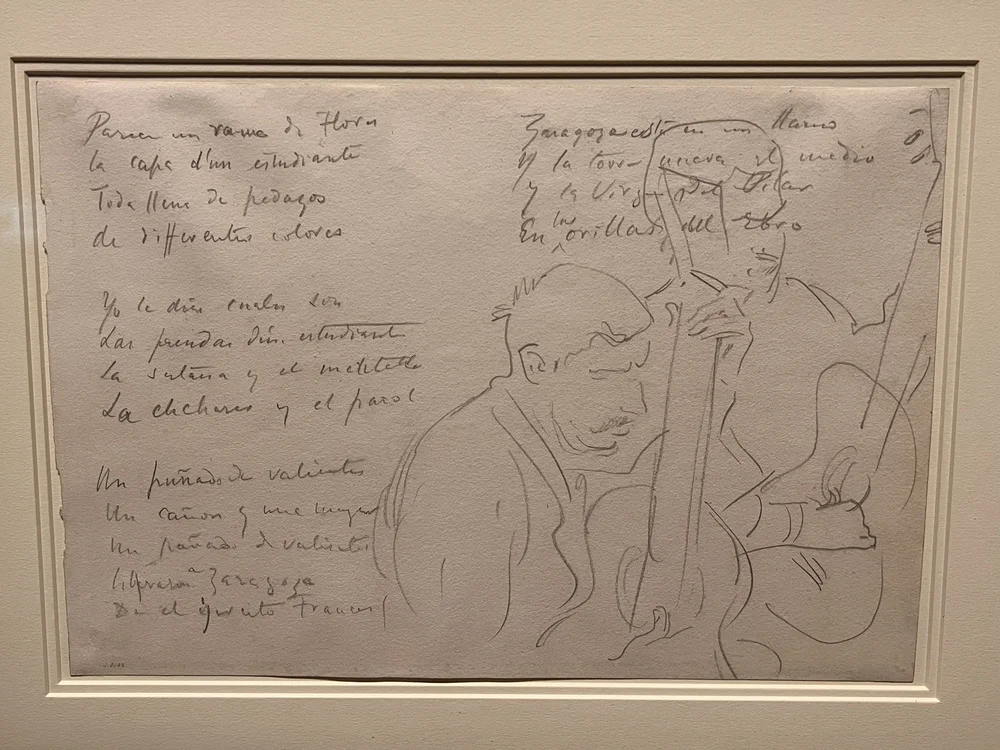 Parece un ramo de Flores
la capa d'un estudiante
Toda llena de pedazos
de differentes colores
Yo le diré cuales son
Las prendas d'un estudiante
La sotana y el
La y el
Un puñado de valientes
Un cañon y une mujer
Un puñado de valientes
Zaragoza
Del Frances
Zaragoza está en un llano
Y la torre nueva el medio
y la Virgen del Pilar
En las orillas del Ebro